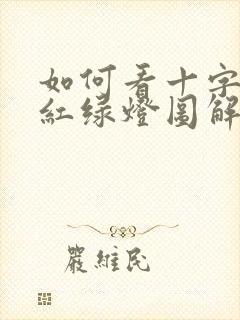 如何看十字
紅绿燈圖解
嚴維民